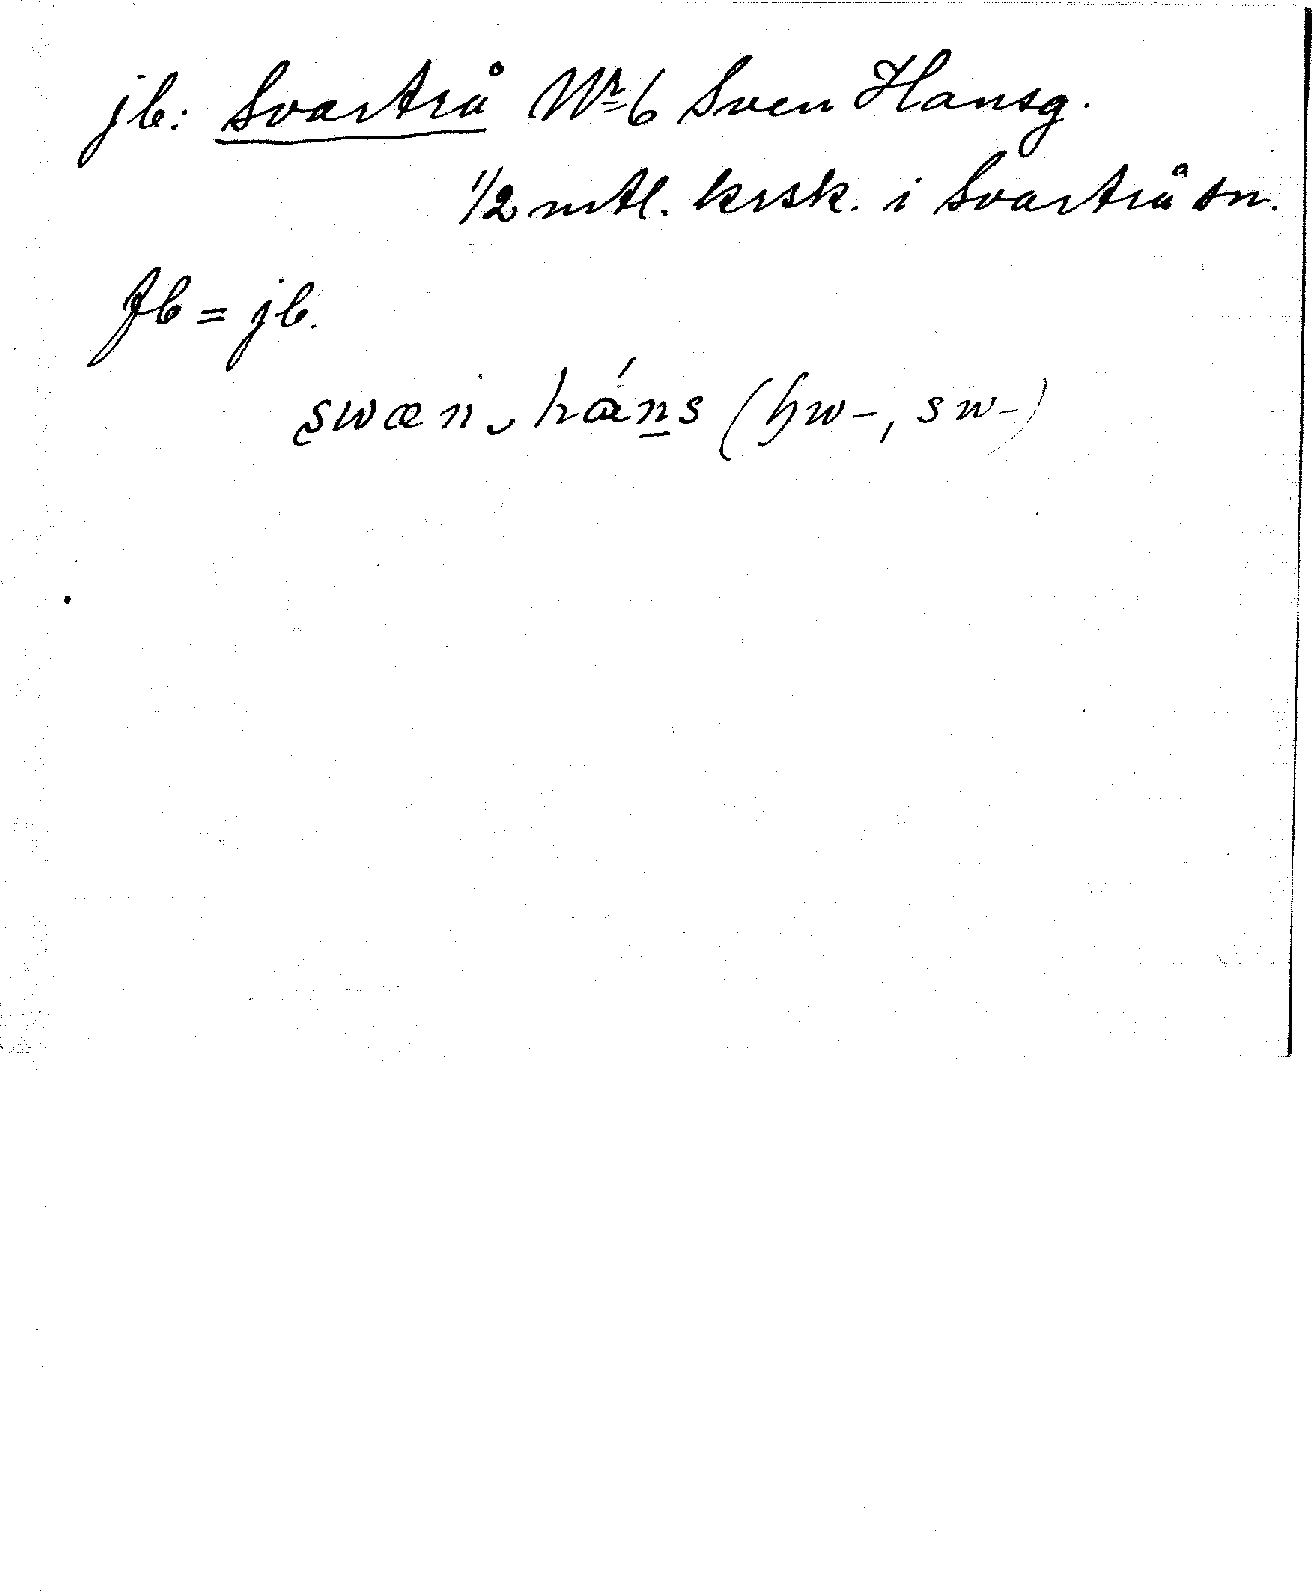 jb: Svartrå Nr 6 Sven Hansg.
1/2 mtl. krsk. i Svartrå sn.
Jb = jb.
swæn háns (hw-, sw-)